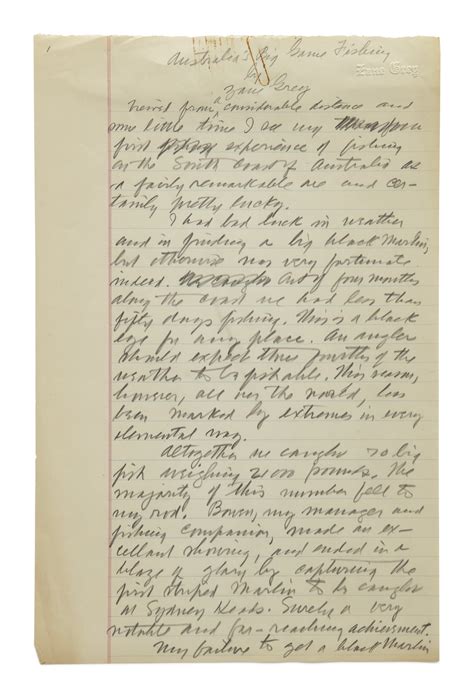 1
Zane Grey
Australia's Big Game Fishing
by
Zane Grey
Viewed from a considerable distance and
some little time I see my
first experience of fishing
on the South Coast of Australia as
a fairly remarkable one and cer-
tainly pretty lucky.
I had bad luck in weather
and in finding a big black Marlin,
but otherwise was very fortunate
indeed. Out of four months
along the coast we had less than
fifty days fishing. This is a black
eye for any place. An angler
should expect three fourths of the
weather to be fishable. This season,
however, all over the world, has
been marked by extremes in every
elemental way.
Altogether we caught big
fish weighing 21000 pounds. The
majority of this number fell to
my rod. Bowen, my manager and
fishing companion, made an ex-
cellant showing, and ended in a
blaze of glory by capturing the
first striped Marlin to be caught
at Sydney Heads. Surely a very
notable and far-reaching achievement.
My failure to get a black Marlin